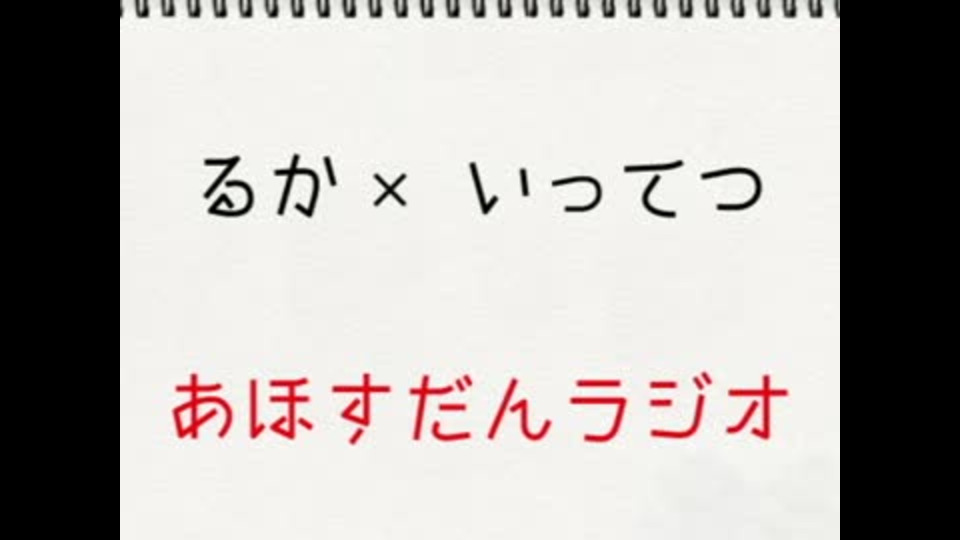 るか× いってつ
あほすだんラジオ